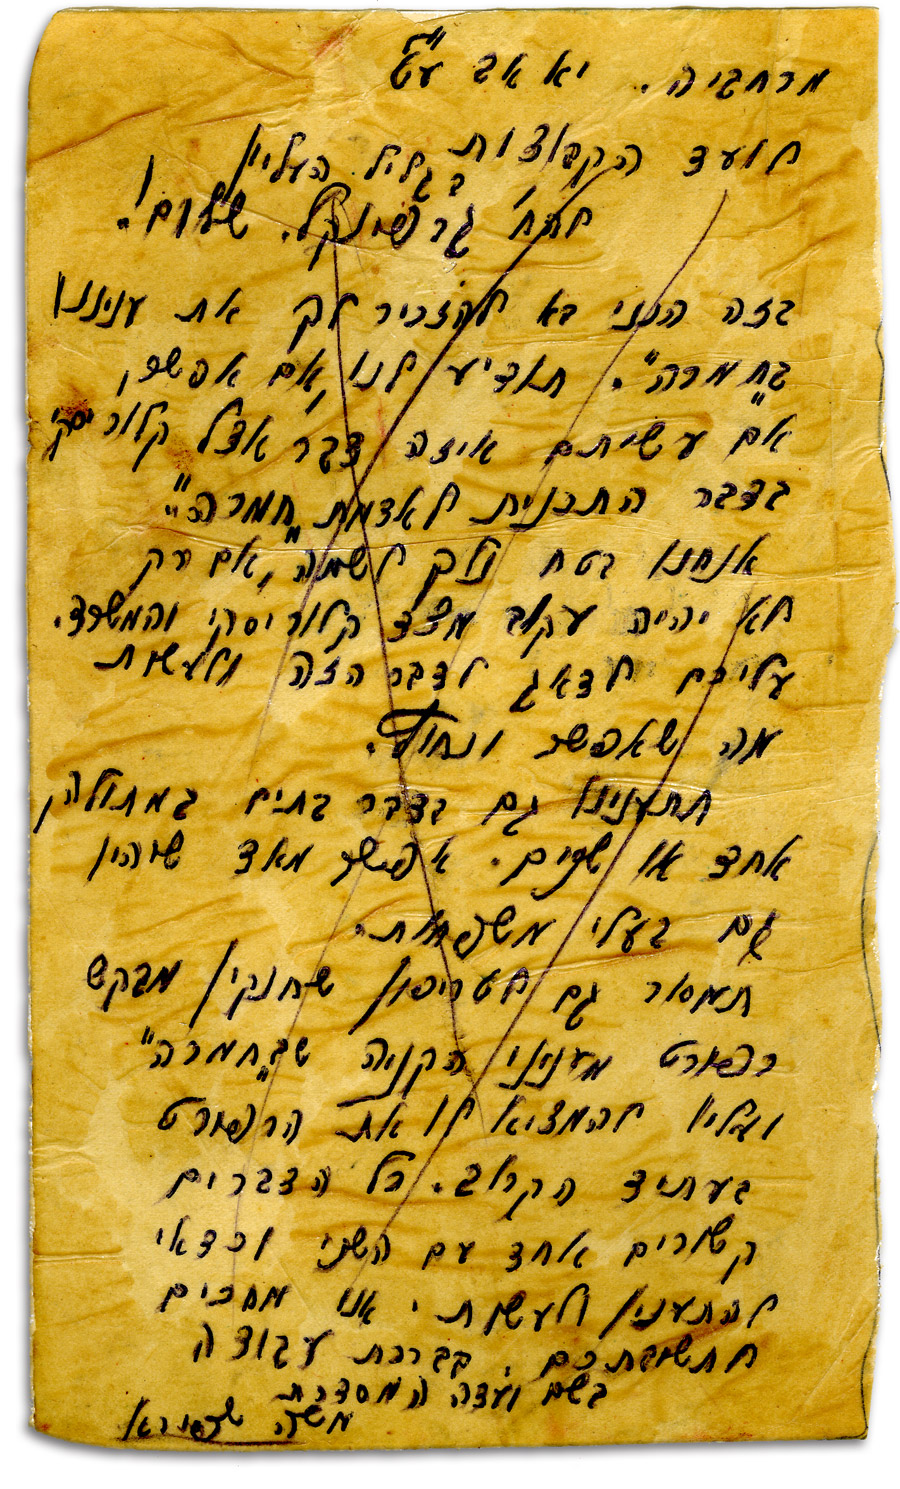 מרחביה. יא אב ע"ט
לועד הקבוצות
בגליל העליון
לחח' גרפינקל. שלום!
בזה הנני בא להזכיר לך את ענינו
בחמרה". תודיע לנו, אם אפשר,
אם עשיתם איזה דבר אצל קלוריסקי
בדבר התכנית לאדמת "חמרה".
אנחנו בטח נלך לשמה, אם רק
לא יהיה עקוב מצד קלוריסקי והמשרד.
עליכם לדאג לדבר הזה ולעשות
מה שאפשר ונחוץ.
תתענינו גם בדבר בתים במתולה,
אחד או שנים. אפשר מאד שיהיו
גם בעלי משפחות.
תמסור גם לטריפון שחנקין מבקש
רפורט מעניני הקניה שב"חמרה"
ועליו להמציא לו את הרפורט
בעתיד הקרוב. כל הדברים
קשורים אחד עם השני וכדאי
להתענין ולעשות. אנו מחכים
לתשובתכם. בברכת עבודה
בשם ועדה המסדרת
משה שפירא